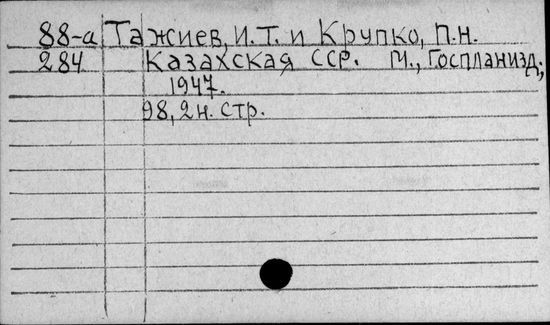 88-а Тажиев, И.Т. и Крупко, П.Н.
284 Казахская ССР. М., Госпланизд;
1947.
98, 2н. стр.